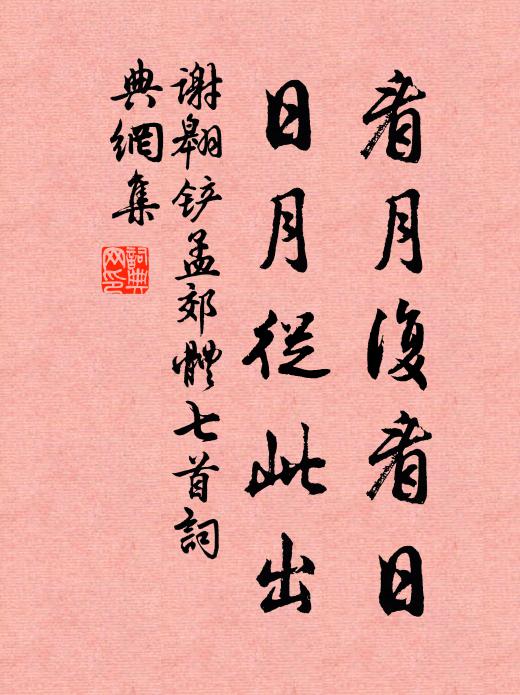 看月復看日
日月從此出
謝翱铲孟郊體七首詞
典網集
詞典
网印